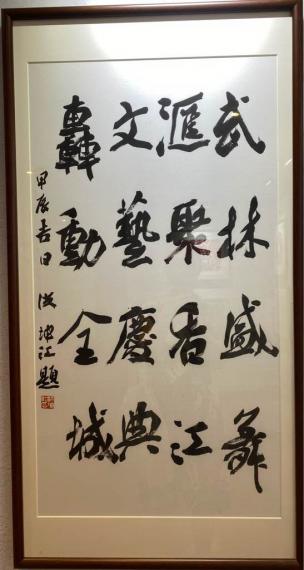 武林盛舞
滙聚香江
文藝慶典
轟動全城
甲辰吉日 江題